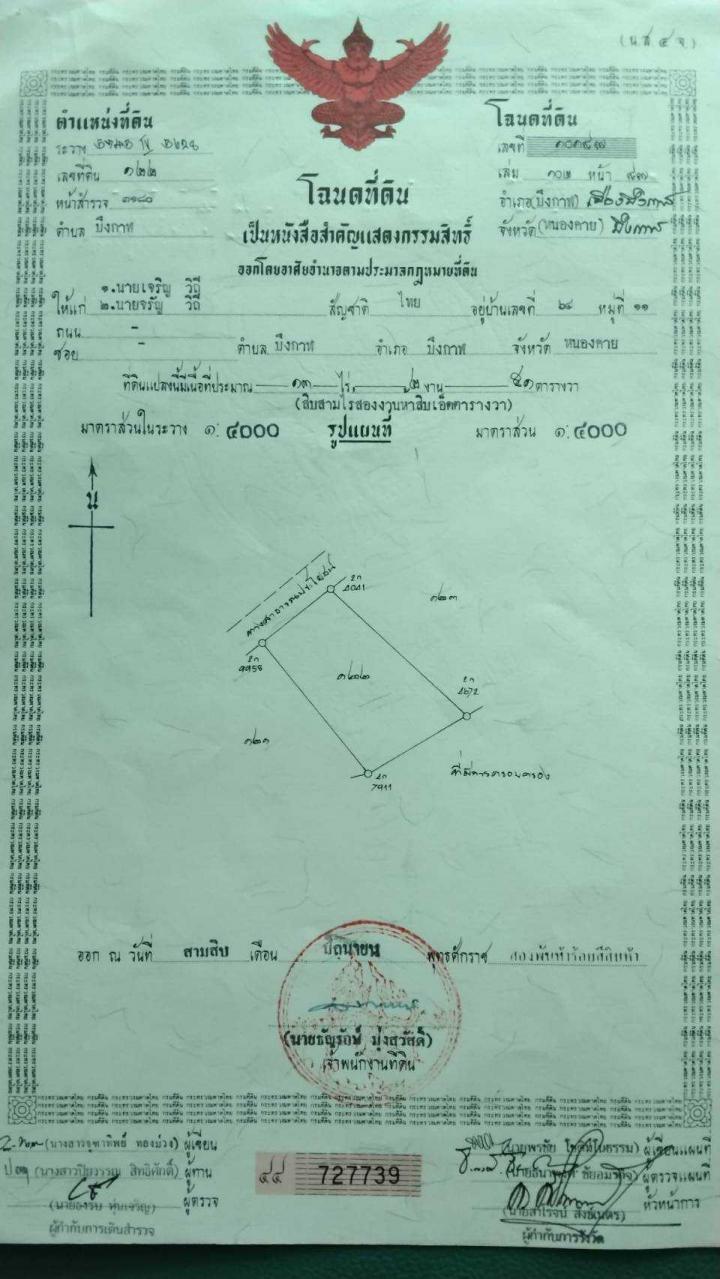 (น.ส.๔ จ.)
ตำแหน่งที่ดิน
ระวาง
เลขที่ดิน ๑๒๒
หน้าสำรวจ ๓๑๘๐
ตำบล บึงกาฬ
โฉนดที่ดิน
เลขที่ ๑๐๑๙๗
เล่ม ๑๐๒ หน้า ๙๗
อำเภอ (บึงกาฬ) เมืองบึงกาฬ
จังหวัด (หนองคาย) บึงกาฬ
โฉนดที่ดิน
เป็นหนังสือสำคัญแสดงกรรมสิทธิ์
ออกโดยอาศัยอำนาจตามประมวลกฎหมายที่ดิน
๑.นายเจริญ วิถี
ให้แก่ ๒.นายจรัญ วิถี สัญชาติ ไทย อยู่บ้านเลขที่ ๖๙ หมู่ที่ ๑๑
ถนน -
ซอย - ตำบล บึงกาฬ อำเภอ บึงกาฬ จังหวัด หนองคาย
ที่ดินแปลงนี้มีเนื้อที่ประมาณ ๑๓ ไร่ ๒ งาน ๕๑ ตารางวา
(สิบสามไร่สองงานห้าสิบเอ็ดตารางวา)
มาตราส่วนในระวาง ๑:๔๐๐๐ รูปแผนที่ มาตราส่วน ๑:๔๐๐๐
น
ทางสาธารณประโยชน์
๑๒๓
๑๒๒
๑๒๑
9958
7911
ที่มีการครอบครอง
ออก ณ วันที่ สามสิบ เดือน มิถุนายน พุทธศักราช สองพันห้าร้อยสี่สิบห้า
(นายธัญรักษ์ มุ่งสวัสดิ์)
เจ้าพนักงานที่ดิน
(นางสาวจุฑาทิพย์ ทองม่วง) ผู้เขียน
(นางสาวปิยวรรณ สิทธิศักดิ์) ผู้ทาน
ผู้ตรวจ
ผู้กำกับการเดินสำรวจ
๔๔ 727739
ผู้เขียนแผนที่
ผู้ตรวจแผนที่
หัวหน้าการ
ผู้กำกับการรังวัด